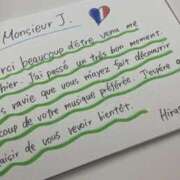 Monsieur J.
erci beaucoup d'être venu me
hier. J'ai passé un très bon moment.
s ravie que vous m'ayez fait découvrir
coup de votre musique préférée. J'espère a
aisir de vous revoir bientôt.
Hiras